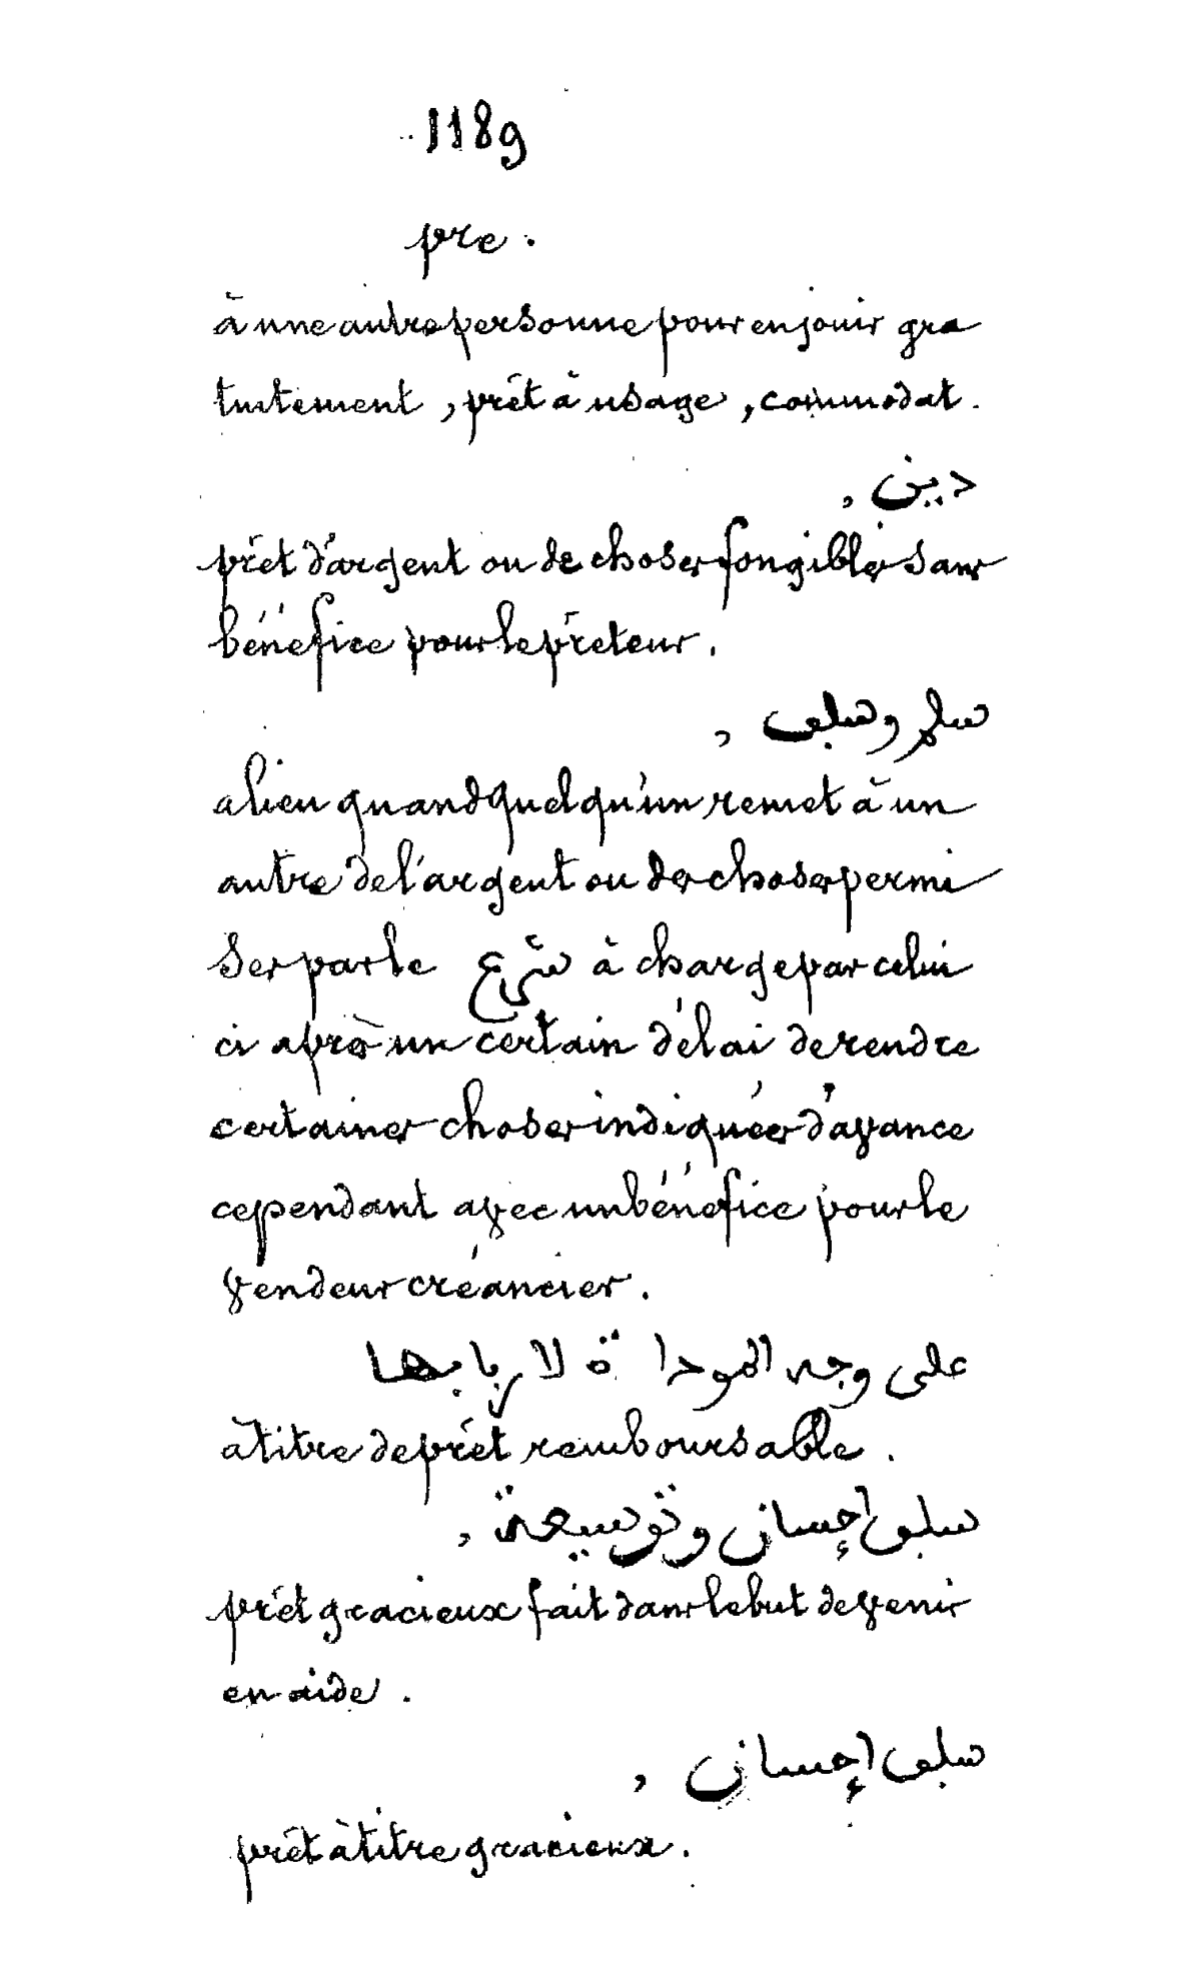 1189
pre.
à une autre personne pour en jouir gra
tuitement, prêt à usage, commodat.
دين,
prêt d'argent ou de choses fongibles sans
bénéfice pour le prêteur.
سلم وسلف,
a lieu quand quelqu'un remet à un
autre de l'argent ou des choses permi
ses par le شرع à charge par celui
ci après un certain délai de rendre
certaines choses indiquées d'avance
cependant avec un bénéfice pour le
vendeur créancier.
على وجه الموداة لا ربا بها
à titre de prêt remboursable.
سلف إحسان وتوسيعة,
prêt gracieux fait dans le but de venir
en aide.
سلف إحسان,
prêt à titre gracieux.